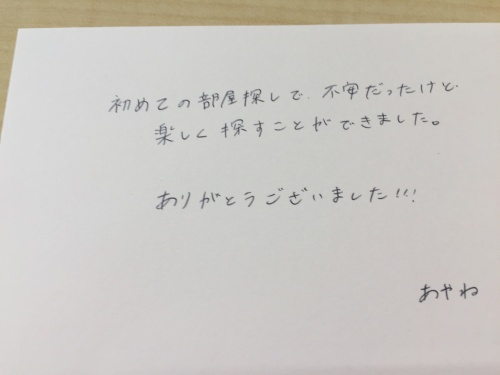 初めての部屋探しで、不安だったけど
楽しく探すことができました。
ありがとうございました!!!
あやね